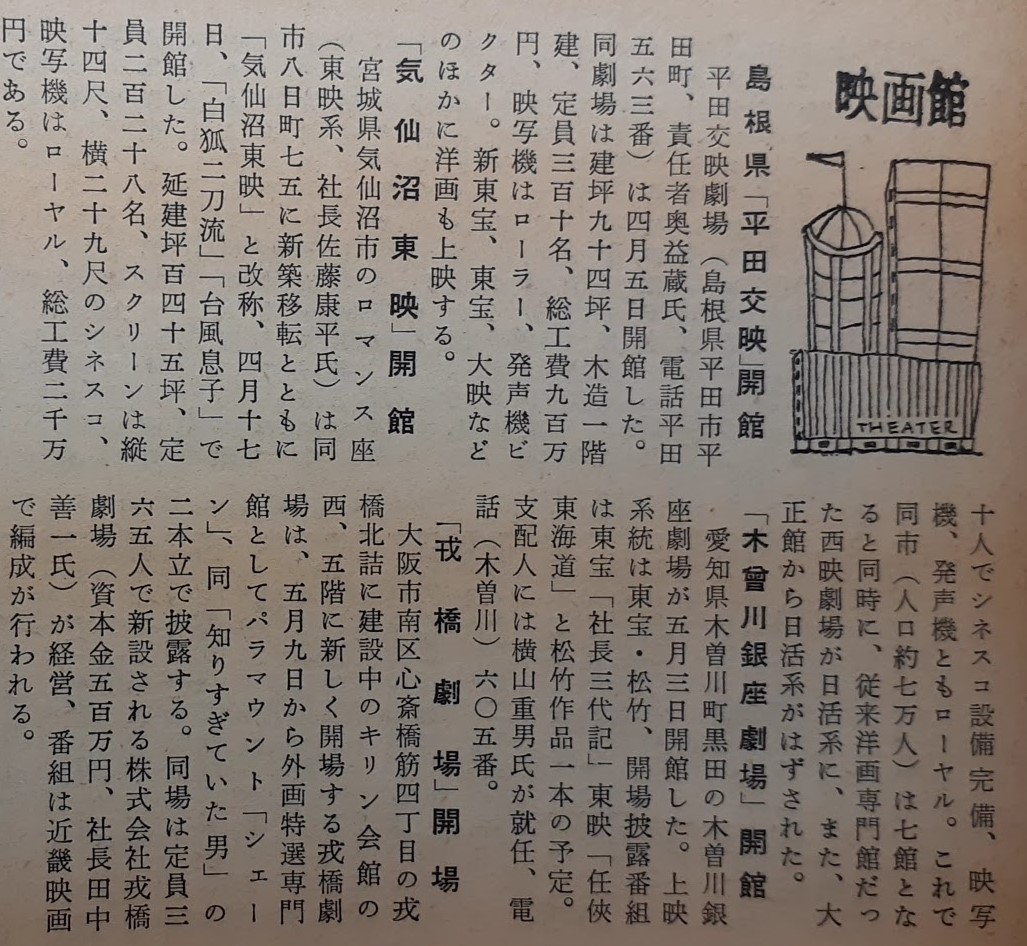 映画館
THEATER
島根県「平田交映」開館
平田交映劇場（島根県平田市平
田町、責任者奥益蔵氏、電話平田
五六三番）は四月五日開館した。
同劇場は建坪九十四坪、木造一階
建、定員三百十名、総工費九百万
円、映写機はローラー、発声機ビ
クター。新東宝、東宝、大映など
のほかに洋画も上映する。
「気仙沼東映」開館
宮城県気仙沼市のロマンス座
（東映系、社長佐藤康平氏）は同
市八日町七五に新築移転とともに
「気仙沼東映」と改称、四月十七
日、「白狐二刀流」「台風息子」で
開館した。延建坪百四十五坪、定
員二百二十八名、スクリーンは縦
十四尺、横二十九尺のシネスコ、
映写機はローヤル、総工費二千万
円である。
十人でシネスコ設備完備、映写
機、発声機ともローヤル。これで
同市（人口約七万人）は七館とな
ると同時に、従来洋画専門館だっ
た西映劇場が日活系に、また、大
正館から日活系がはずされた。
「木曾川銀座劇場」開館
愛知県木曽川町黒田の木曽川銀
座劇場が五月三日開館した。上映
系統は東宝・松竹、開場披露番組
は東宝「社長三代記」東映「任俠
東海道」と松竹作品一本の予定。
支配人には横山重男氏が就任、電
話（木曽川）六〇五番。
「戎橋劇場」開場
大阪市南区心斎橋筋四丁目の戎
橋北詰に建設中のキリン会館の
西、五階に新しく開場する戎橋劇
場は、五月九日から外画特選専門
館としてパラマウント「シェー
ン」、同「知りすぎていた男」の
二本立で披露する。同場は定員三
六五人で新設される株式会社戎橋
劇場（資本金五百万円、社長田中
善一氏）が経営、番組は近畿映画
で編成が行われる。